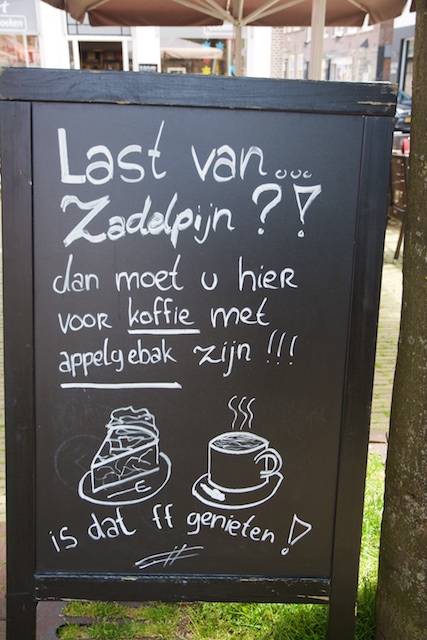 Last van...
Zadelpijn ?!
dan moet u hier
voor koffie met
appelgebak zijn !!!
is dat ff genieten !